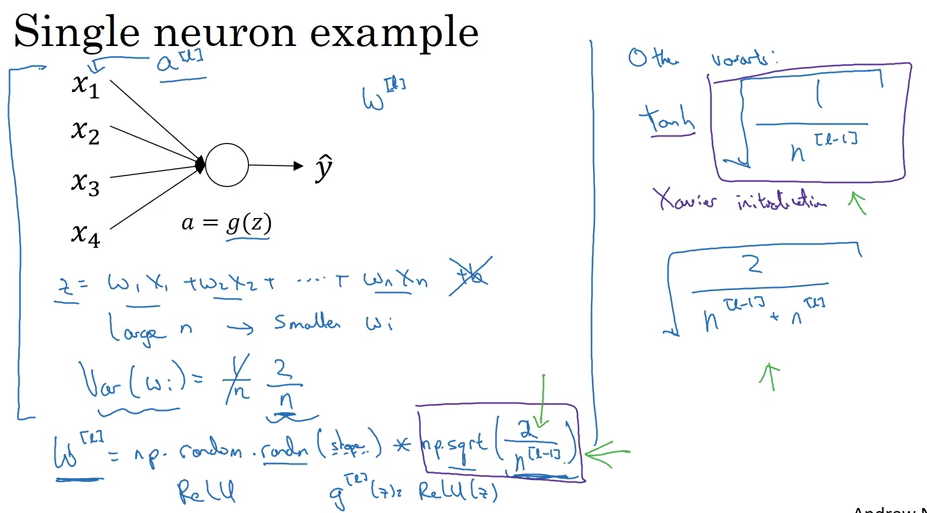 Single neuron example
x₁
x₂
x₃
x₄
a^[l]
w^[l]
ŷ
a = g(z)
z = w₁x₁ + w₂x₂ + ... + wₙxₙ +b
Large n → Smaller wᵢ
Var(wᵢ) = 1/n 2/n
W^[l] = np.random.randn(shape) * np.sqrt(2/n^[l-1])
ReLU g^[l](z) = ReLU(z)
Other variants:
tanh √(1/n^[l-1])
Xavier initialization
√(2/(n^[l-1] + n^[l]))